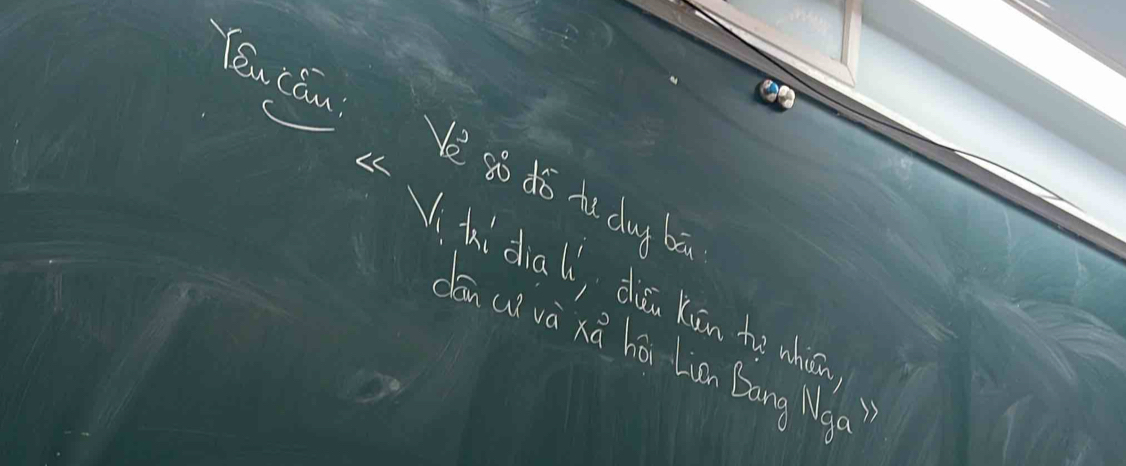 Yêu cầu:
Vẽ sơ đồ tư duy bài:
« Vị trí địa lí, điều kiện tự nhiên,
dân cư và xã hội Liên Bang Nga »